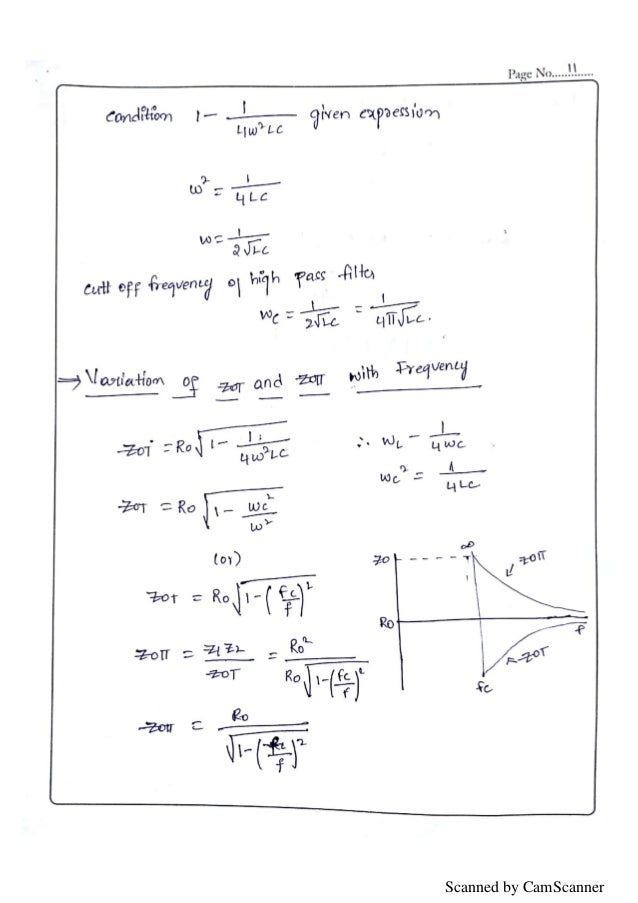 Page No......11......
Condition 1 - 1/4ω²LC given expression
ω² = 1/4LC
ω = 1/2√LC
Cutt off frequency of high pass filter
ωc = 1/2√LC = 1/4π√LC.
⇒ Variation of ZOT and ZOπ with Frequency
ZOT = RO√1 - 1/4ω²LC ∴ ωL - 1/4ωC
ZOT = RO√1 - ωc²/ω² ωc² = 1/4LC
(or)
ZOT = RO√1-(fc/f)²
ZOπ = Z1Z2/ZOT = RO²/RO√1-(fc/f)²
ZOπ = RO/√1-(fc/f)²
ZO ∞ ZOπ
RO f
ZOT
fc
Scanned by CamScanner